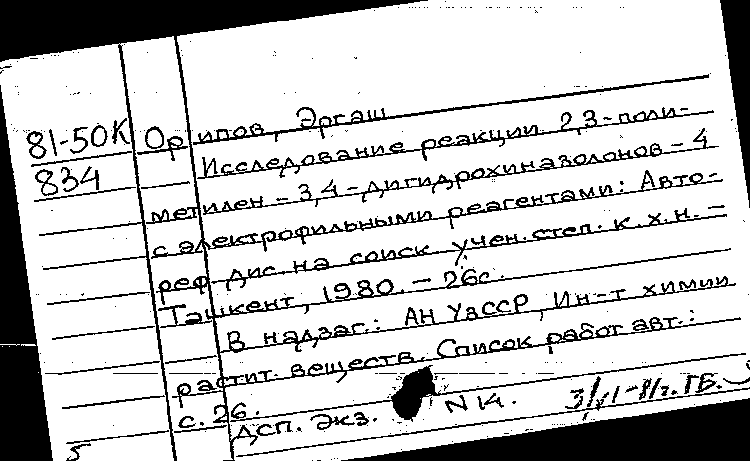 81-50К
834
Орипов, Эргаш
Исследование реакции 2,3-поли-
метилен-3,4-дигидрохиназолонов-4
с электрофильными реагентами: Авто-
реф. дис. на соиск. учен. степ. к.х.н. -
Ташкент, 1980. - 26с.
В надзаг.: АН УзССР, Ин-т химии
растит. веществ. Список работ авт.:
с. 26.
Дсп. Экз. N 14.
5